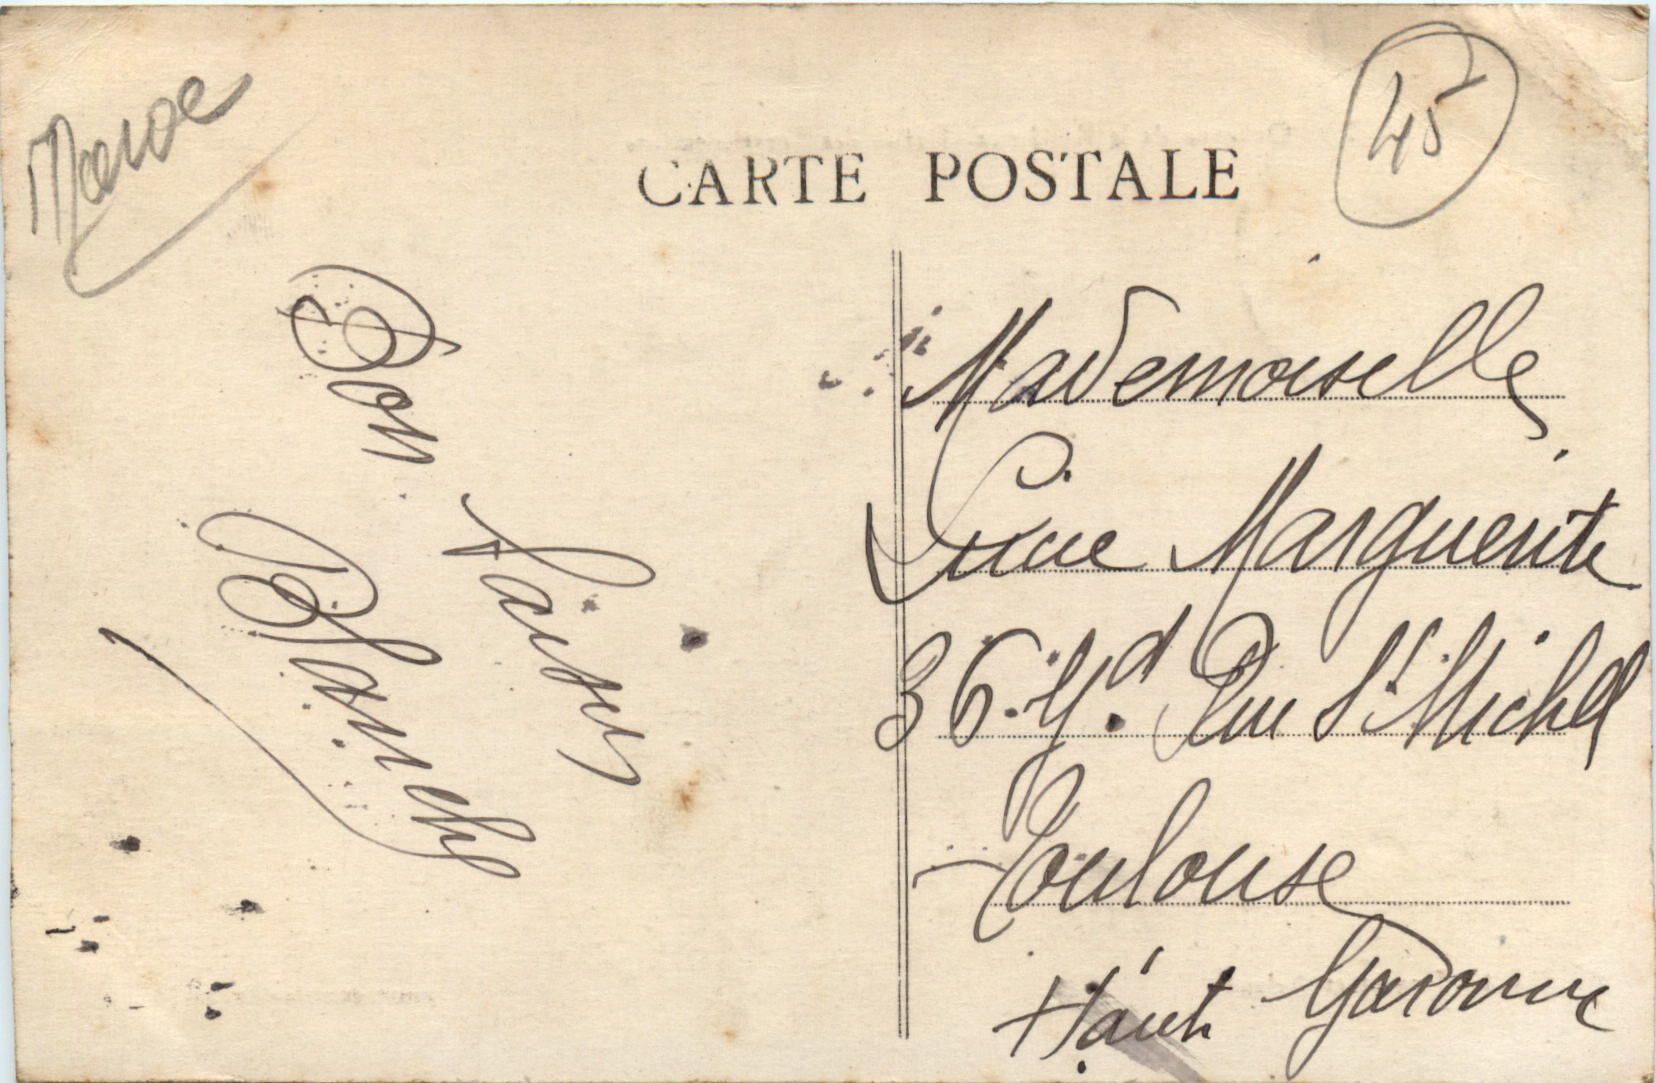 Maroc
45
CARTE POSTALE
Bon baiser
Blanche
Mademoiselle
Marguerite
36. Gd Rue St Michel
Toulouse
Haute Garonne